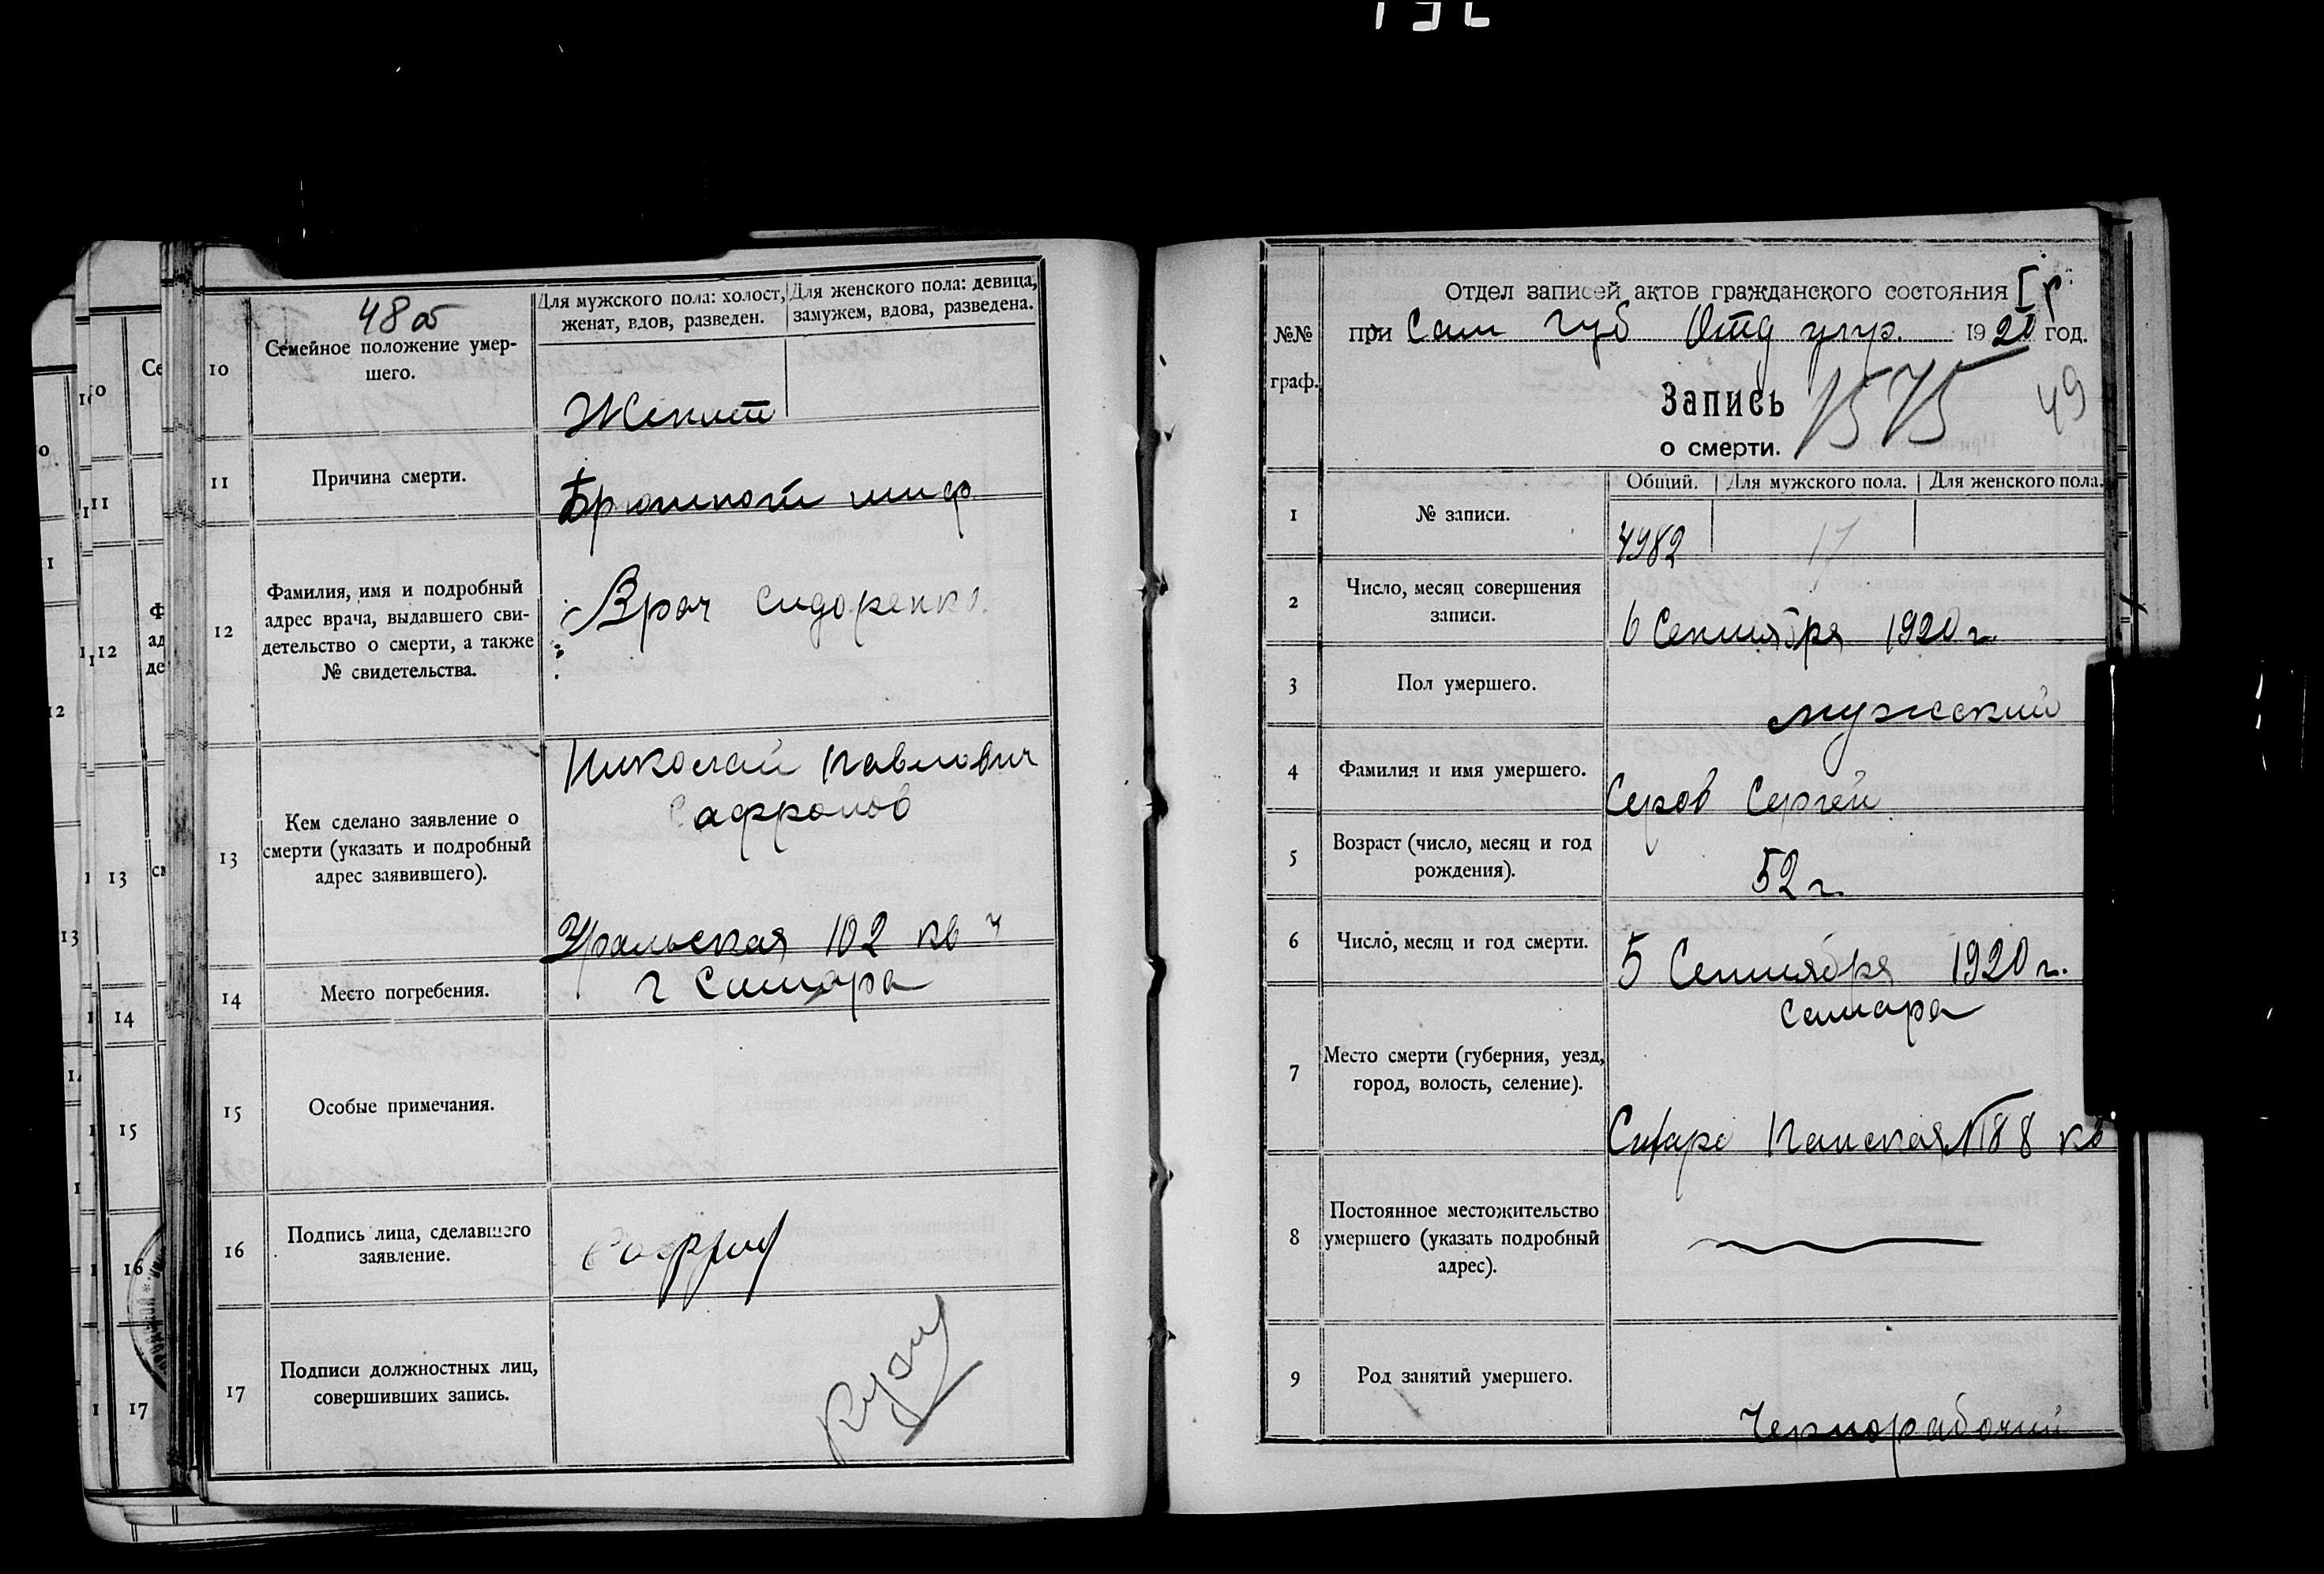 48 об
10
Семейное положение умер-
шего.
Для мужского пола: холост,
женат, вдов, разведен.
Для женского пола: девица,
замужем, вдова, разведена.
Женат
11
Причина смерти.
Брюшной тиф
12
Фамилия, имя и подробный
адрес врача, выдавшего сви-
детельство о смерти, а также
№ свидетельства.
Врач Сидоренко.
13
Кем сделано заявление о
смерти (указать и подробный
адрес заявившего).
Николай Павлович
Сафронов
Уральская 102 кв
14
Место погребения.
г Самара
15
Особые примечания.
16
Подпись лица, сделавшего
заявление.
17
Подписи должностных лиц,
совершивших запись.
№№
граф.
Отдел записей актов гражданского состояния
при Сам Губ Отд упр. 1920 год.
Запись
о смерти.
1575
49
Общий.
Для мужского пола.
Для женского пола.
1
№ записи.
4982
17
2
Число, месяц совершения
записи.
6 Сентября 1920 г.
3
Пол умершего.
мужской
4
Фамилия и имя умершего.
Серов Сергей
5
Возраст (число, месяц и год
рождения).
52 г.
6
Число, месяц и год смерти.
5 Сентября 1920 г.
7
Место смерти (губерния, уезд,
город, волость, селение).
Самара
88 кв
8
Постоянное местожительство
умершего (указать подробный
адрес).
9
Род занятий умершего.
Чернорабочий
10
11
12
13
14
15
16
17